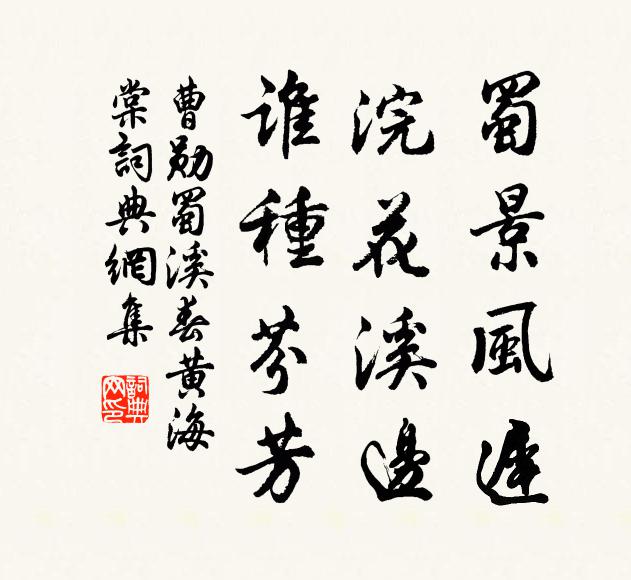 蜀景風遲
浣花溪邊
誰種芬芳
曹勛蜀溪春黃海
棠詞典網集
詞典
网印